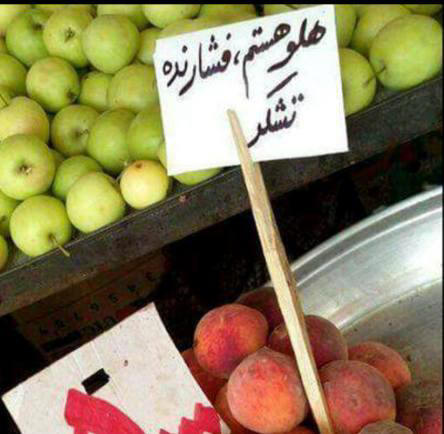 هلو هستم، فشارنده
تشکر